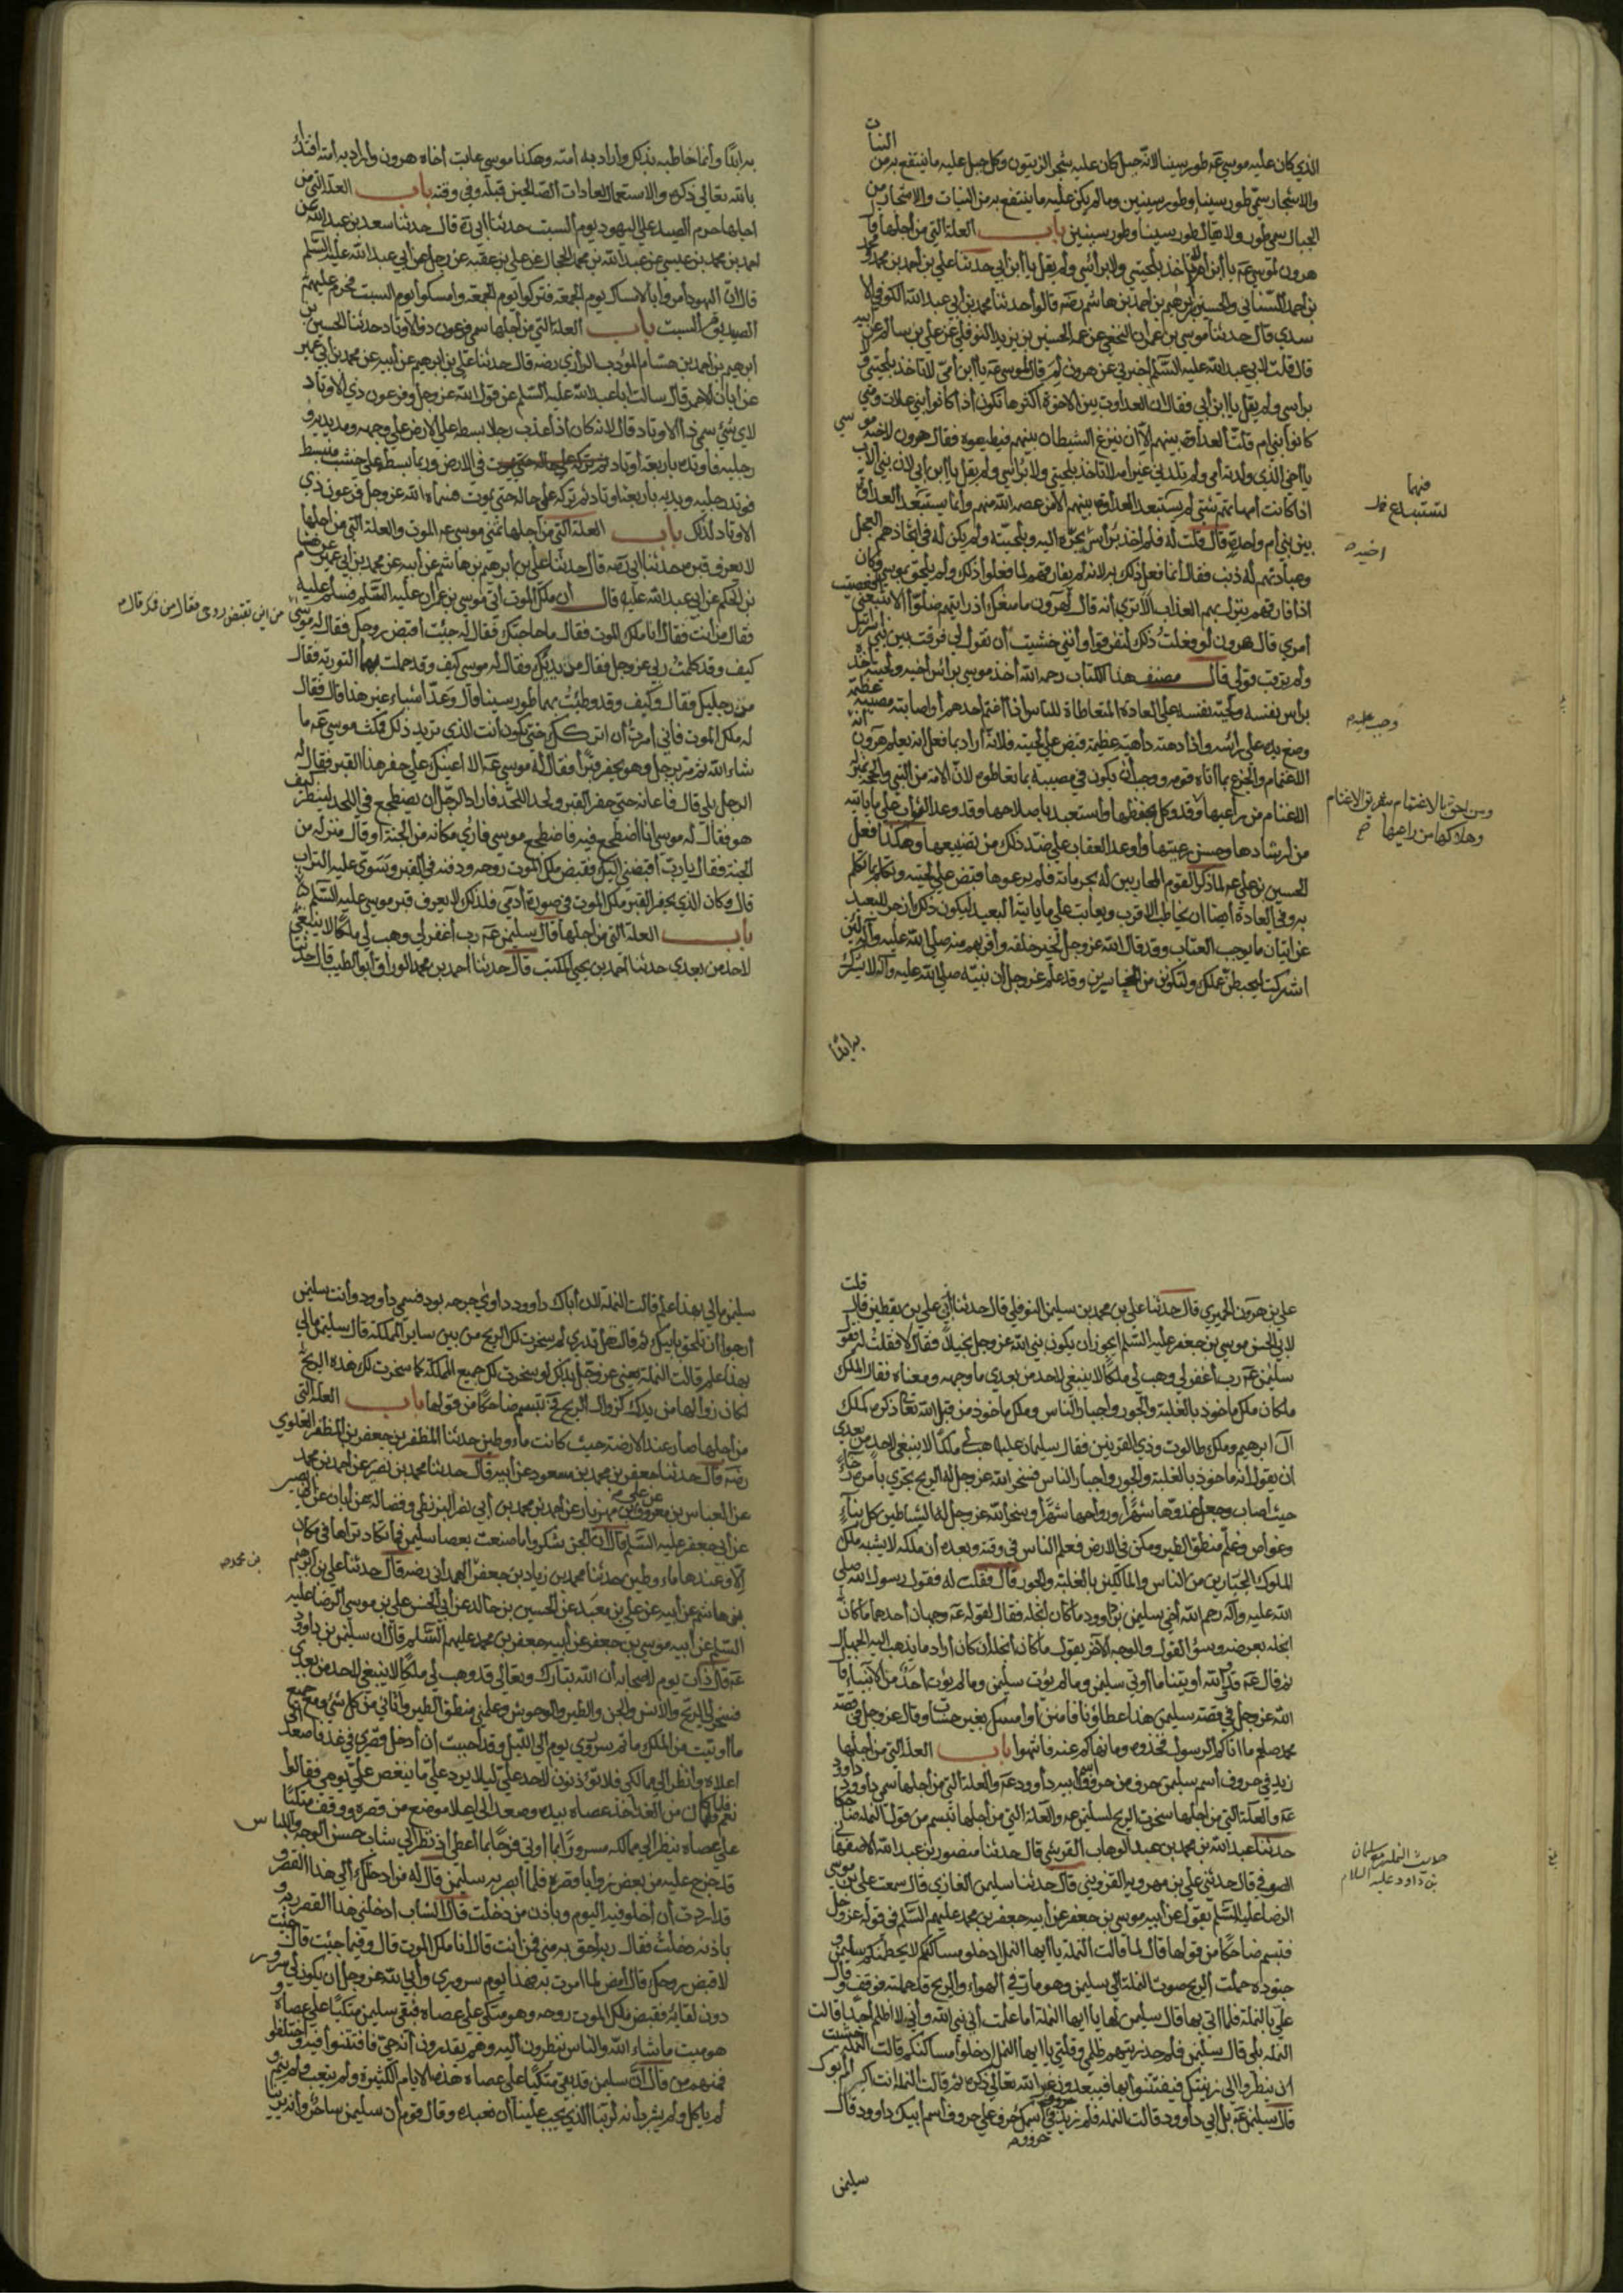 الذي كان عليه موسى عه طور سينا لانه جبل كان عليه شجر الزيتون وكل جبل عليه ما ينتفع به من النبات
والاشجار سمي طور سينا وطور سينين وما لم يكن عليه ما ينتفع به من النبات والاشجار من
الجبال سمي طور ولا يقال طور سينا وطور سينين باب العلة التي من اجلها قال
هرون لموسى عه يا ابن ام لا تاخذ بلحيتي ولا براسي ولم يقل يا ابن ابي حدثنا علي بن احمد بن محمد و محمد
بن احمد السناني والحسين بن ابرهيم بن احمد بن هاشم رضه قالوا حدثنا محمد بن ابي عبد الله الكوفي الا
سدي قال حدثنا موسى بن عمران النخعي عن عمه الحسين بن يزيد النوفلي عن علي بن سالم عن ابيه
قال قلت لابي عبد الله عليه السلم اخبرني عن هرون لم قال لموسى عه يا ابن ام لا تاخذ بلحيتي ولا
براسي ولم يقل يا ابن ابي فقال ان العداوت بين الاخوة اكثرها تكون اذا كانوا بني علات ومتى
كانوا بني ام قلت العداوة بينهم الا ان ينزغ الشيطان بينهم فيطيعوه فقال هرون لاخيه موسى
يا اخي الذي ولدته امي ولم تلدني غير امه لا تاخذ بلحيتي ولا براسي ولم يقل يا ابن ابي لان بني الاب
اذا كانت امهاتهم شتى لم يستبعد العداوة بينهم الا من عصمه الله منهم وانما يستبعد العداوة
بين بني ام واحدة قال قلت له فلم اخذ براس يجره اليه وبلحيته ولم يكن له في اتخاذهم العجل
وعبادتهم له ذنب فقال انما فعل ذلك به لانه لم يفارقهم لما فعلوا ذلك ولم يلحق بموسى وكان
اذا فارقهم ينزل بهم العذاب الا ترى انه قال لهرون ما منعك اذ رايتهم ضلوا الا تتبعني افعصيت
امري قال هرون لو فعلت ذلك لتفرقوا وانني خشيت ان تقول لي فرقت بين بني اسرائيل
ولم ترقب قولي قال مصنف هذا الكتاب رحمه الله اخذ موسى براس اخيه ولحيته اخذه
براس نفسه ولحية نفسه على العادة المتعاطاة للناس اذا اغتم احدهم او اصابته مصيبة عظيمة
وضع يده على راسه واذا دهته داهية عظيمة قبض على لحيته فكانه اراد بما فعل انه يعلم هرون انه
الاغتمام والجزع بما اتاه قومه ووجب ان يكون في مصيبة بما تعاطوه لان الامة من النبي والحجة بمنزلة
الاغنام من راعيها وقد وكل بحفظها واستعبد باصلاحها وقد وعد الثواب على ما ياتيه
من ارشادها وحسن رعيتها واوعد العقاب على ضد ذلك من تضييعها وهكذا فعل
الحسين بن علي عه لما ذكر القوم المحاربين له بحرماته فلم يرعوها قبض على لحيته وتكلم بما تكلم
به وفي العادة ايضا ان يخاطب الاقرب ويعاتب على ما ياتيه البعيد ليكون ذلك ازجر للبعيد
عن اتيان ما يوجب العتاب وقد قال الله عز وجل لخير خلقه واقربهم منه صلى الله عليه واله لئن
اشركت ليحبطن عملك ولتكونن من الخاسرين وقد علم عز وجل ان نبيه صلى الله عليه واله لا يشرك
به ابدا
فيها
اخيه
وجب عليه
ومن احق بالاغتمام بتفريق الاغنام
وهلاكها من راعيها
به ابدا وانما خاطبه بذلك واراد به امته وهكذا موسى عاتب اخاه هرون واراد به امته اقتداء
بالله تعالى ذكره والاستعمال لعادات الصالحين قبله وفي وقته باب العلة التي من
اجلها حرم الصيد على اليهود يوم السبت حدثنا ابي ره قال حدثنا سعد بن عبد الله عن
احمد بن محمد بن عيسى عن عبد الله بن محمد الحجال عن علي بن عقبة عن رجل عن ابي عبد الله عليه السلم
قال ان اليهود امروا بالامساك يوم الجمعة فتركوا يوم الجمعة وامسكوا يوم السبت فحرم عليهم
الصيد يوم السبت باب العلة التي من اجلها سمي فرعون ذو الاوتاد حدثنا الحسين بن
ابرهيم بن احمد بن هشام المؤدب الرازي رضه قال حدثنا علي بن ابرهيم عن ابيه عن محمد بن ابي عمير
عن ابان الاحمر قال سالت ابا عبد الله عليه السلم عن قول الله عز وجل وفرعون ذي الاوتاد
لاي شيء سمي ذا الاوتاد قال لانه كان اذا عذب رجلا بسطه على الارض على وجهه ومد يديه و
رجليه فاوتده باربعة اوتاد في الارض وربما بسطه على خشب منبسط
فوتد رجليه ويديه باربعة اوتاد ثم تركه على حاله حتى يموت فسماه الله عز وجل فرعون ذي
الاوتاد لذلك باب العلة التي من اجلها تمنى موسى عه الموت والعلة التي من اجلها
لا يعرف قبره حدثنا ابي رضه قال حدثنا علي بن ابرهيم بن هاشم عن ابيه عن محمد بن ابي عمير عن هشام
بن الحكم عن ابي عبد الله عليه قال ان ملك الموت اتى موسى بن عمران عليه السلم فسلم عليه
فقال من انت فقال انا ملك الموت فقال ما حاجتك فقال له جئت اقبض روحك فقال له موسى
كيف وقد كلمت ربي عز وجل فقال من يديك فقال له موسى كيف وقد حملت بهما التوريه فقال
من رجليك فقال وكيف وقد وطئت بهما طور سينا قال وعد اشياء غير هذا قال فقال
له ملك الموت فاني امرت ان اتركك حتى تكون انت الذي تريد ذلك فمكث موسى عه ما
شاء الله ثم مر برجل وهو يحفر قبرا فقال له موسى عه الا اعينك على حفر هذا القبر فقال له
الرجل بلى قال فاعانه حتى حفر القبر ولحد اللحد فاراد الرجل ان يضطجع في اللحد لينظر كيف
هو فقال له موسى انا اضطجع فيه فاضطجع موسى فاري مكانه من الجنة او قال منزله من
الجنة فقال يا رب اقبضني اليك فقبض ملك الموت روحه ودفنه في القبر وسوى عليه التراب
قال وكان الذي يحفر القبر ملك الموت في صورة ادمي فلذلك لا يعرف قبر موسى عليه السلم
باب العلة التي من اجلها قال سليمن عه رب اغفر لي وهب لي ملكا لا ينبغي
لاحد من بعدي حدثنا احمد بن يحيى المكتب قال حدثنا احمد بن محمد الوراق ابو الطيب قال حدثنا
علي بن هرون الحميري قال حدثنا علي بن محمد بن سليمن النوفلي قال حدثنا ابي عن علي بن يقطين قال قلت
لابي الحسن موسى بن جعفر عليه السلم ايجوز ان يكون نبي الله عز وجل بخيلا فقال لا فقلت له فقول
سليمن عه رب اغفر لي وهب لي ملكا لا ينبغي لاحد من بعدي ما وجهه ومعناه فقال الملك
ملكان ملك ماخوذ بالغلبة والجور واجبار الناس وملك ماخوذ من قبل الله تعا ذكره كملك
ال ابرهيم وملك طالوت وذي القرنين فقال سليمان عليه هب لي ملكا لا ينبغي لاحد من بعدي
ان يقول انه ماخوذ بالغلبة والجور واجبار الناس فسخر الله عز وجل له الريح تجري بامره رخاء
حيث اصاب وجعل غدوها شهرا ورواحها شهرا وسخر الله عز وجل له الشياطين كل بناء
وغواص وعلم منطق الطير ومكن في الارض فعلم الناس في وقته وبعده ان ملكه لا يشبه ملك
الملوك الجبارين من الناس والمالكين بالغلبة والجور قال فقلت له فقول رسول الله صلى
الله عليه واله رحم الله اخي سليمن بن داوود ما كان ابخله فقال لقوله عه وجهان احدهما ما كان
ابخله بعرضه وسوء القول والوجه الاخر يقول ما كان ابخله ان كان اراد ما يذهب اليه الجهال
ثم قال عه قد والله اوتينا ما اوتي سليمن وما لم يؤت سليمن وما لم يؤت احد من الانبياء قال
الله عز وجل في قصة سليمن هذا عطاؤنا فامنن او امسك بغير حساب وقال عز وجل في قصة
محمد صلعم ما اتاكم الرسول فخذوه وما نهاكم عنه فانتهوا باب العلة التي من اجلها
زيد في حروف اسم سليمن حرف من حروف اسم ابيه داوود عه والعلة التي من اجلها سمي داوود داوود
عه والعلة التي من اجلها سخرت الريح لسليمن عه والعلة التي من اجلها تبسم من قول النملة ضاحكا
حدثنا عبد الله بن محمد بن عبد الوهاب القرشي قال حدثنا منصور بن عبد الله الاصفهاني
الصوفي قال حدثني علي بن مهرويه القزويني قال حدثنا سليمن الغازي قال سمعت علي بن موسى
الرضا عليه السلم يقول عن ابيه موسى بن جعفر عن ابيه جعفر بن محمد عليهم السلم في قوله عز وجل
فتبسم ضاحكا من قولها قال لما قالت النملة يا ايها النمل ادخلوا مساكنكم لا يحطمنكم سليمن و
جنوده حملت الريح صوت النملة الى سليمن وهو مار في الهواء والريح قد حملته فوقف وقال
علي بالنملة فلما اتي بها قال سليمن لها يا ايها النملة اما علمت اني نبي الله واني لا اظلم احدا قالت
النملة بلى قال سليمن فلم حذرتيهم ظلمي وقلتي يا ايها النمل ادخلوا مساكنكم قالت النملة خشيت
ان ينظروا الى زينتك فيفتتنوا بها فيبعدون عن الله تعالى ذكره ثم قالت النملة انت اكبر ام ابوك
قال سليمن عه بل ابي داوود قالت النملة فلم زيد في حروف اسمك حرف على حروف اسم ابيك داوود قال
سليمن
حديث النملة وسليمان
بن داود عليه السلام
سليمن مالي بهذا علم قالت النملة لان اباك داوود داوى جرحه بود فسمي داوود وانت سليمن
ارجوا ان تلحق بابيك ثم قالت هل تدري لم سخرت لك الريح من بين ساير المملكة قال سليمن مالي
بهذا علم قالت النملة يعني عز وجل بذلك لو سخرت لك جميع المملكة كما سخرت لك هذه الريح
لكان زوالها من يدك كزوال الريح فح تبسم ضاحكا من قولها باب العلة التي
من اجلها صار عند الارضة حيث كانت ماء وطين حدثنا المظفر بن جعفر بن المظفر العلوي
رضه قال حدثنا جعفر بن محمد بن مسعود عن ابيه قال حدثنا محمد بن نصر عن احمد بن محمد
عن العباس بن معروف عن علي بن مهزيار عن احمد بن محمد بن ابي نصر البزنطي وفضالة عن ابان عن ابي بصير
عن ابي جعفر عليه السلم قال ان الجن شكروا ما صنعت بعصا سليمن فما تكاد تراها في مكان
الا وعندها ماء وطين حدثنا محمد بن زياد بن جعفر الهمداني رضه قال حدثنا علي بن ابرهيم
بن هاشم عن ابيه عن علي بن معبد عن الحسين بن خالد عن ابي الحسن علي بن موسى الرضا عليه
السلم عن ابيه موسى بن جعفر عن ابيه جعفر بن محمد عليهم السلم قال ان سليمن بن داوود
عه قال ذات يوم لاصحابه ان الله تبارك وتعالى قد وهب لي ملكا لا ينبغي لاحد من بعدي
فسخر لي الريح والانس والجن والطير والوحوش وعلمني منطق الطير واتاني من كل شيء ومع جميع
ما اوتيت من الملك ما تم سروري يوم الى الليل وقد احببت ان ادخل قصري في غد فاصعد
اعلاه وانظر الى ممالكي فلا تؤذنون لاحد علي ليلا يرد علي ما ينغص علي يومي فقالوا
نعم فلما كان من الغد اخذ عصاه بيده وصعد الى اعلا موضع من قصره ووقف متكئا
على عصاه ينظر الى ممالكه مسرورا بما اوتي فرحا بما اعطي اذ نظر الى شاب حسن الوجه واللباس
قد خرج عليه من بعض زوايا قصره فلما ابصر به سليمن قال له من ادخلك الى هذا القصر و
قد اردت ان اخلو فيه اليوم وباذن من دخلت قال الشاب ادخلني هذا القصر ربه و
باذنه دخلت فقال ربه احق به مني فمن انت قال انا ملك الموت قال وفيما جئت قال جئت
لاقبض روحك قال امض لما امرت به فهذا يوم سروري وابى الله عز وجل ان يكون لي سرور
دون لقائه فقبض ملك الموت روحه وهو متكئ على عصاه فبقي سليمن متكئا على عصاه و
هو ميت ما شاء الله والناس ينظرون اليه وهم يقدرون انه حي فافتتنوا فيه واختلفو
فمنهم من قال ان سليمن قد بقي متكئا على عصاه هذه الايام الكثيرة ولم يتعب ولم ينم و
لم ياكل ولم يشرب انه لربنا الذي يجب علينا ان نعبده وقال قوم ان سليمن ساحر وانه يرينا